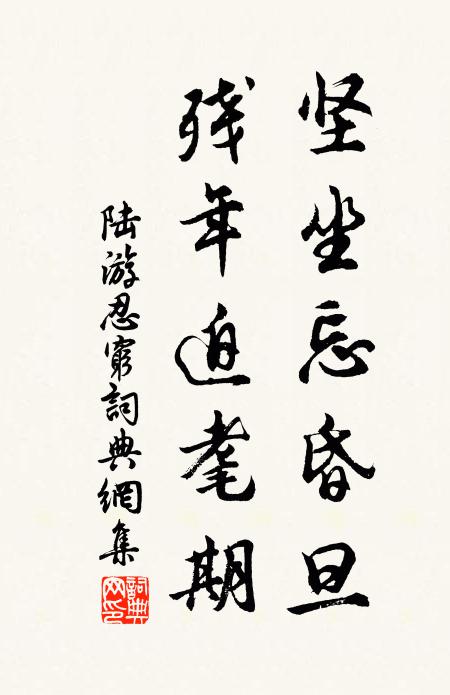 坚坐忘昏旦
残年迫耄期
陆游忍穷詞典網集
詞典网印